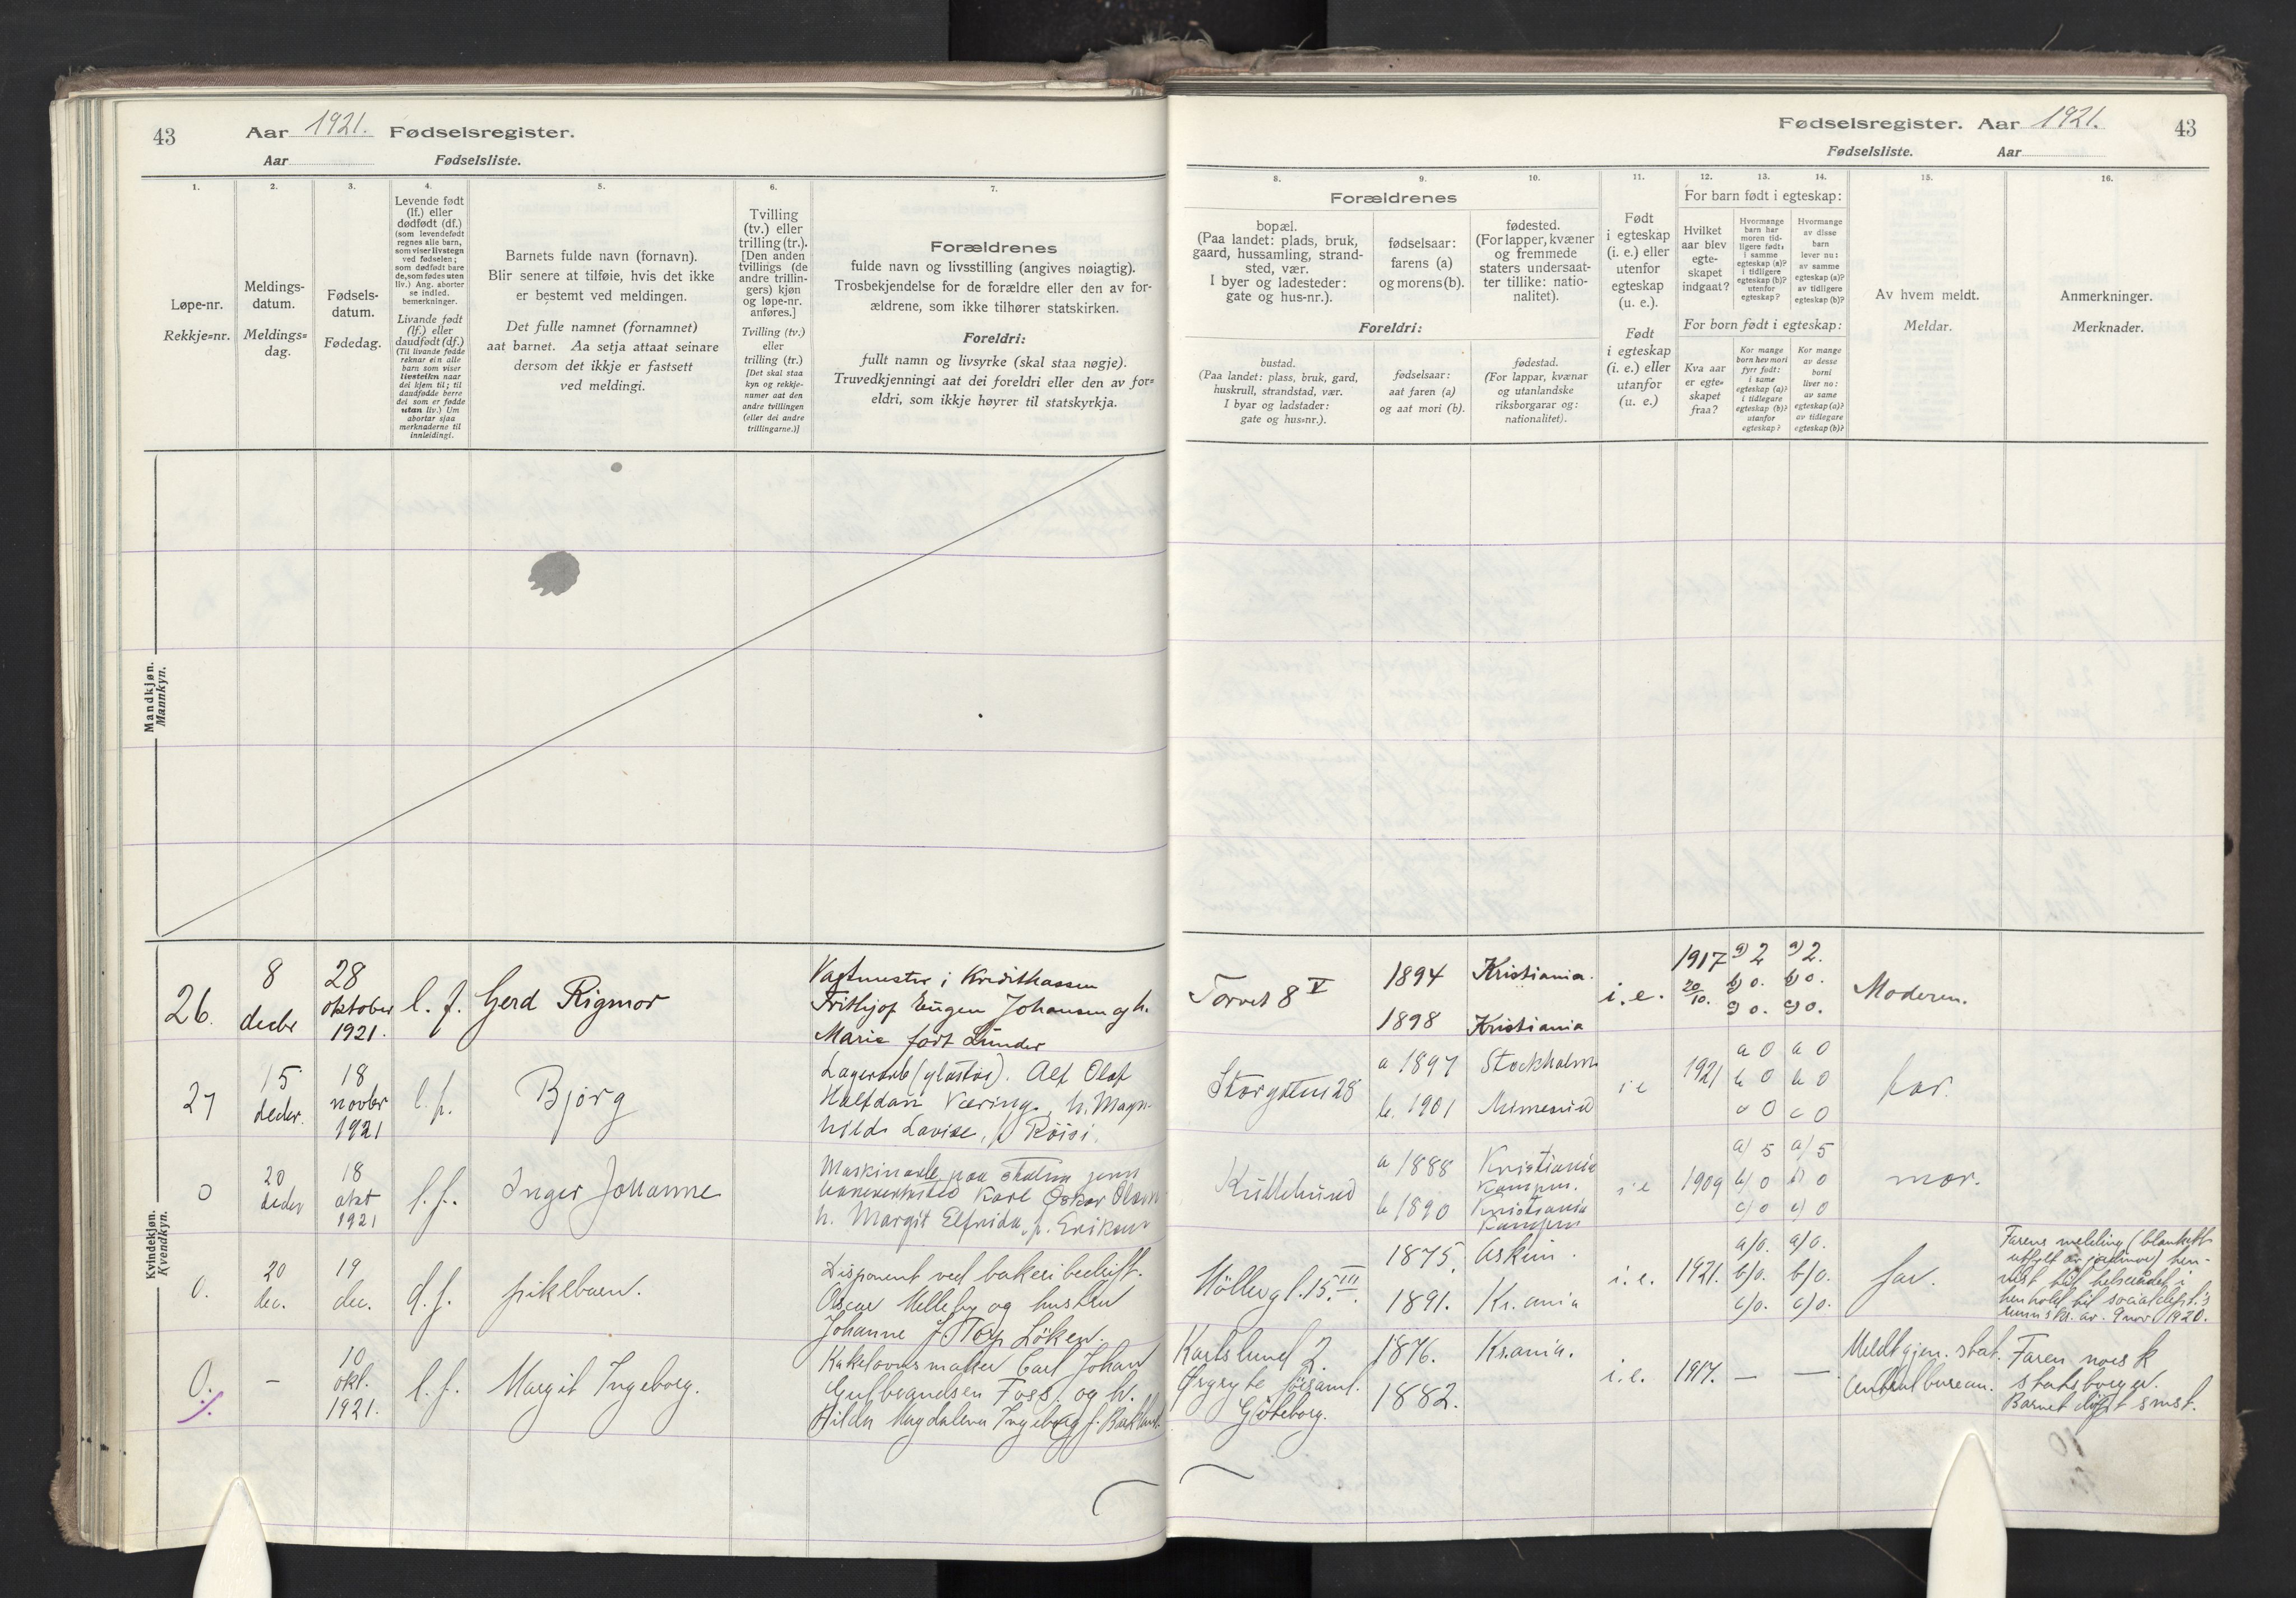 43
Aar 1921. Fødselsregister.
Aar Fødselsliste.
1.
2.
3.
4.
5.
6.
7.
Løpe-nr.
Rekkje=nr.
Meldings-
datum.
Meldings=
dag.
Fødsels-
datum.
Fødedag.
Levende født
(lf.) eller
dødfødt (df.)
(som levendefødt
regnes alle barn,
som viser livstegn
ved fødselen;
som dødfødt bare
de, som fødes uten
liv.) Ang. aborter
se indled.
bemerkninger.
Livande født
(lf.) eller
daudfødt (df.)
(Til livande fødde
reknar ein alle
barn som viser
livsteikn naar
dei kjem til; til
daudfødde berre
dei som er fødde
utan liv.) Um
abortar sjaa
merknaderne til
innleidingi.
Barnets fulde navn (fornavn).
Blir senere at tilføie, hvis det ikke
er bestemt ved meldingen.
Det fulle namnet (fornamnet)
aat barnet. Aa setja attaat seinare
dersom det ikkje er fastsett
ved meldingi.
Tvilling
(tv.) eller
trilling (tr.).
[Den anden
tvillings (de
andre trillin-
gers) kjøn
og løpe-nr.
anføres.]
Tvilling (tv.)
eller
trilling (tr.)
[Det skal staa
kyn og rekkje-
numer aat den
andre tvillingen
(eller dei andre
trillingarne.)]
Forældrenes
fulde navn og livsstilling (angives nøiagtig).
Trosbekjendelse for de forældre eller den av for-
ældrene, som ikke tilhører statskirken.
Foreldri:
fullt namn og livsyrke (skal staa nøgje).
Truvedkjenningi aat dei foreldri eller den av for=
eldri, som ikkje høyrer til statskyrkja.
Mandkjøn.
Mannkyn.
Kvindekjøn.
Kvendkyn.
26.
8
decbr
28
oktober
1921.
l. f.
Gerd Rigmor
Vagtmester i Kreditkassen
Frithjof Eugen Johansen og h.
Marie født Lunder
27
15
decbr.
18
novbr
1921
l. f.
Bjørg
Lagerarb (glastøi). Alf Olaf
Halfdan Væring. h. Magn-
hilds Lovise, f. Röisi.
0
20
decbr
18
okt
1921
l. f.
Inger Johanne
Karl Oskar Olsen
h. Margit Elfrida, f. Eriksen
0.
20
dec.
19
dec.
d. f.
pikebarn.
Disponent ved bakeribedrift.
Oscar Melleby og hustru
Johanne f. Torp Löken.
0.
–
10
okt.
1921.
l. f.
Margit Ingeborg.
Kakelovnsmaker Carl Johan
Gulbrandsen Foss. og h.
Hilda Magdalena Ingeborg f.
Fødselsregister. Aar 1921.
43
Fødselsliste. Aar
8.
9.
10.
11.
12.
13.
14.
15.
16.
Forældrenes
bopæl.
(Paa landet: plads, bruk,
gaard, hussamling, strand-
sted, vær.
I byer og ladesteder:
gate og hus-nr.).
fødselsaar:
farens (a)
og morens (b).
fødested.
(For lapper, kvæner
og fremmede
staters undersaat-
ter tillike: natio-
nalitet).
Foreldri:
bustad.
(Paa landet: plass, bruk, gard,
huskrull, strandstad, vær.
I byar og ladstader:
gate og hus=nr.).
fødselsaar:
aat faren (a)
og aat mori (b).
fødestad.
(For lappar, kvænar
og utanlandske
riksborgarar og:
nationalitet).
Født
i egteskap
(i. e.) eller
utenfor
egteskap
(u. e.).
Født
i egteskap
(i. e.) eller
utanfor
(u. e.)
For barn født i egteskap:
Hvilket
aar blev
egte-
skapet
indgaat?
Hvormange
barn har
moren tid-
ligere født:
i samme
egteskap (a)?
i tidligere
egteskap (b)?
utenfor
egteskap?
Hvormange
av disse
barn
lever nu:
av samme
egteskap (a)?
av tidligere
egteskap (b)?
For born født i egteskap:
Kva aar
er egte=
skapet
fraa?
Kor mange
born hev mori
fyrr født:
i same
egteskap (a)?
i tidlegare
egteskap (b)?
utanfor
egteskap?
Kor mange
av desse
borni
liver no:
av same
egteskap (a)?
av tidlegare
egteskap (b)?
Av hvem meldt.
Meldar.
Anmerkninger.
Merknader.
Torvet 8 V
1894
1898
Kristiania.
Kristiania
i. e.
1917
20/10.
a) 2
b) 0.
c) 0.
a) 2.
b) 0.
c) 0.
Moderen.
Storgaten 28
a 1897
b. 1901
Stockholm
Minnesund
i e
1921
a 0
b 0
c 0
a 0
b 0
c 0
far.
a 1888
b 1890
Kristiania
Kampen.
Kristiania
Kampen
i e
1909
a) 5
b) 0
c) 0
a) 5
b) 0
c) 0
mor.
Möllergt. 15. III.
1875.
1891.
Askim.
Kr. ania
i. e.
1921.
a) 0.
b) 0.
c) 0.
a) 0.
b) 0.
c) 0.
far.
Farens melding (blankett
utfylt av jordmor) hen-
vist til helseraadet i
henhold til socialdept.'s
rundskr. av. 9 nov. 1920.
Karlslund 2.
Örgryte församl.
Göteborg.
1876.
1882.
Kr.ania.
i. e.
1917.
–
–
Meldt gjen. stat.
Centralbureau.
Faren norsk
statsborger.
Barnet döpt smst.